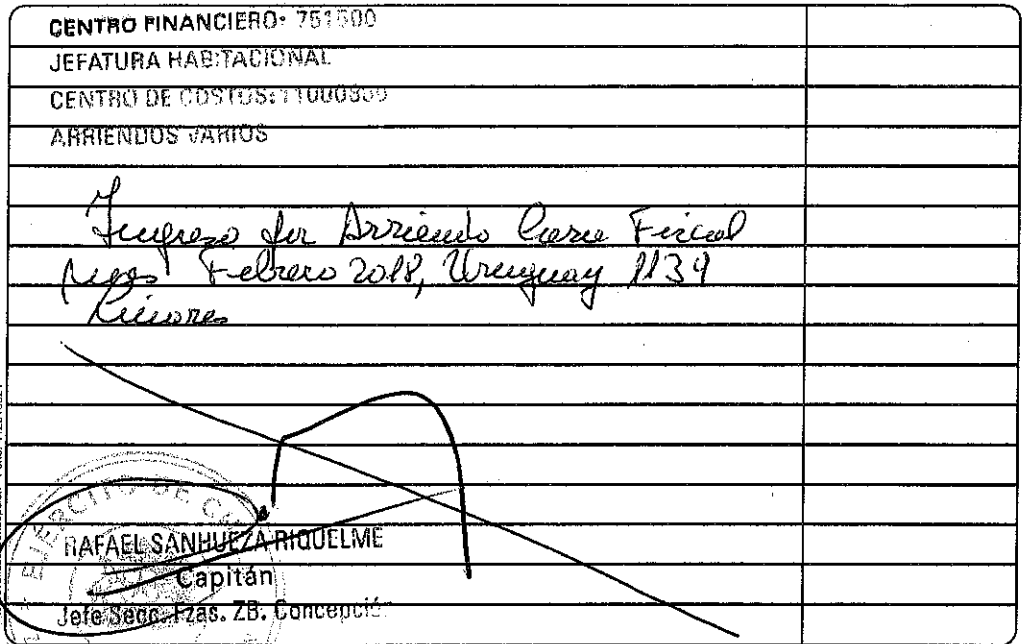 CENTRO FINANCIERO: 751500
JEFATURA HABITACIONAL
CENTRO DE COSTOS: 11000350
ARRIENDOS VARIOS
Ingreso por Arriendo Casa Fiscal
Mes Febrero 2018, Uruguay 1139
Linares
EJERCITO DE
RAFAEL SANHUEZA RIQUELME
Capitán
Jefe Secc. Fzas. ZB. Concepción